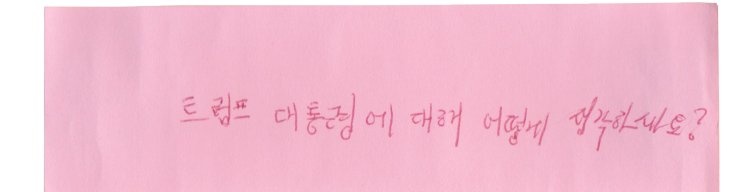 트럼프 대통령에 대해 어떻게 생각하세요?